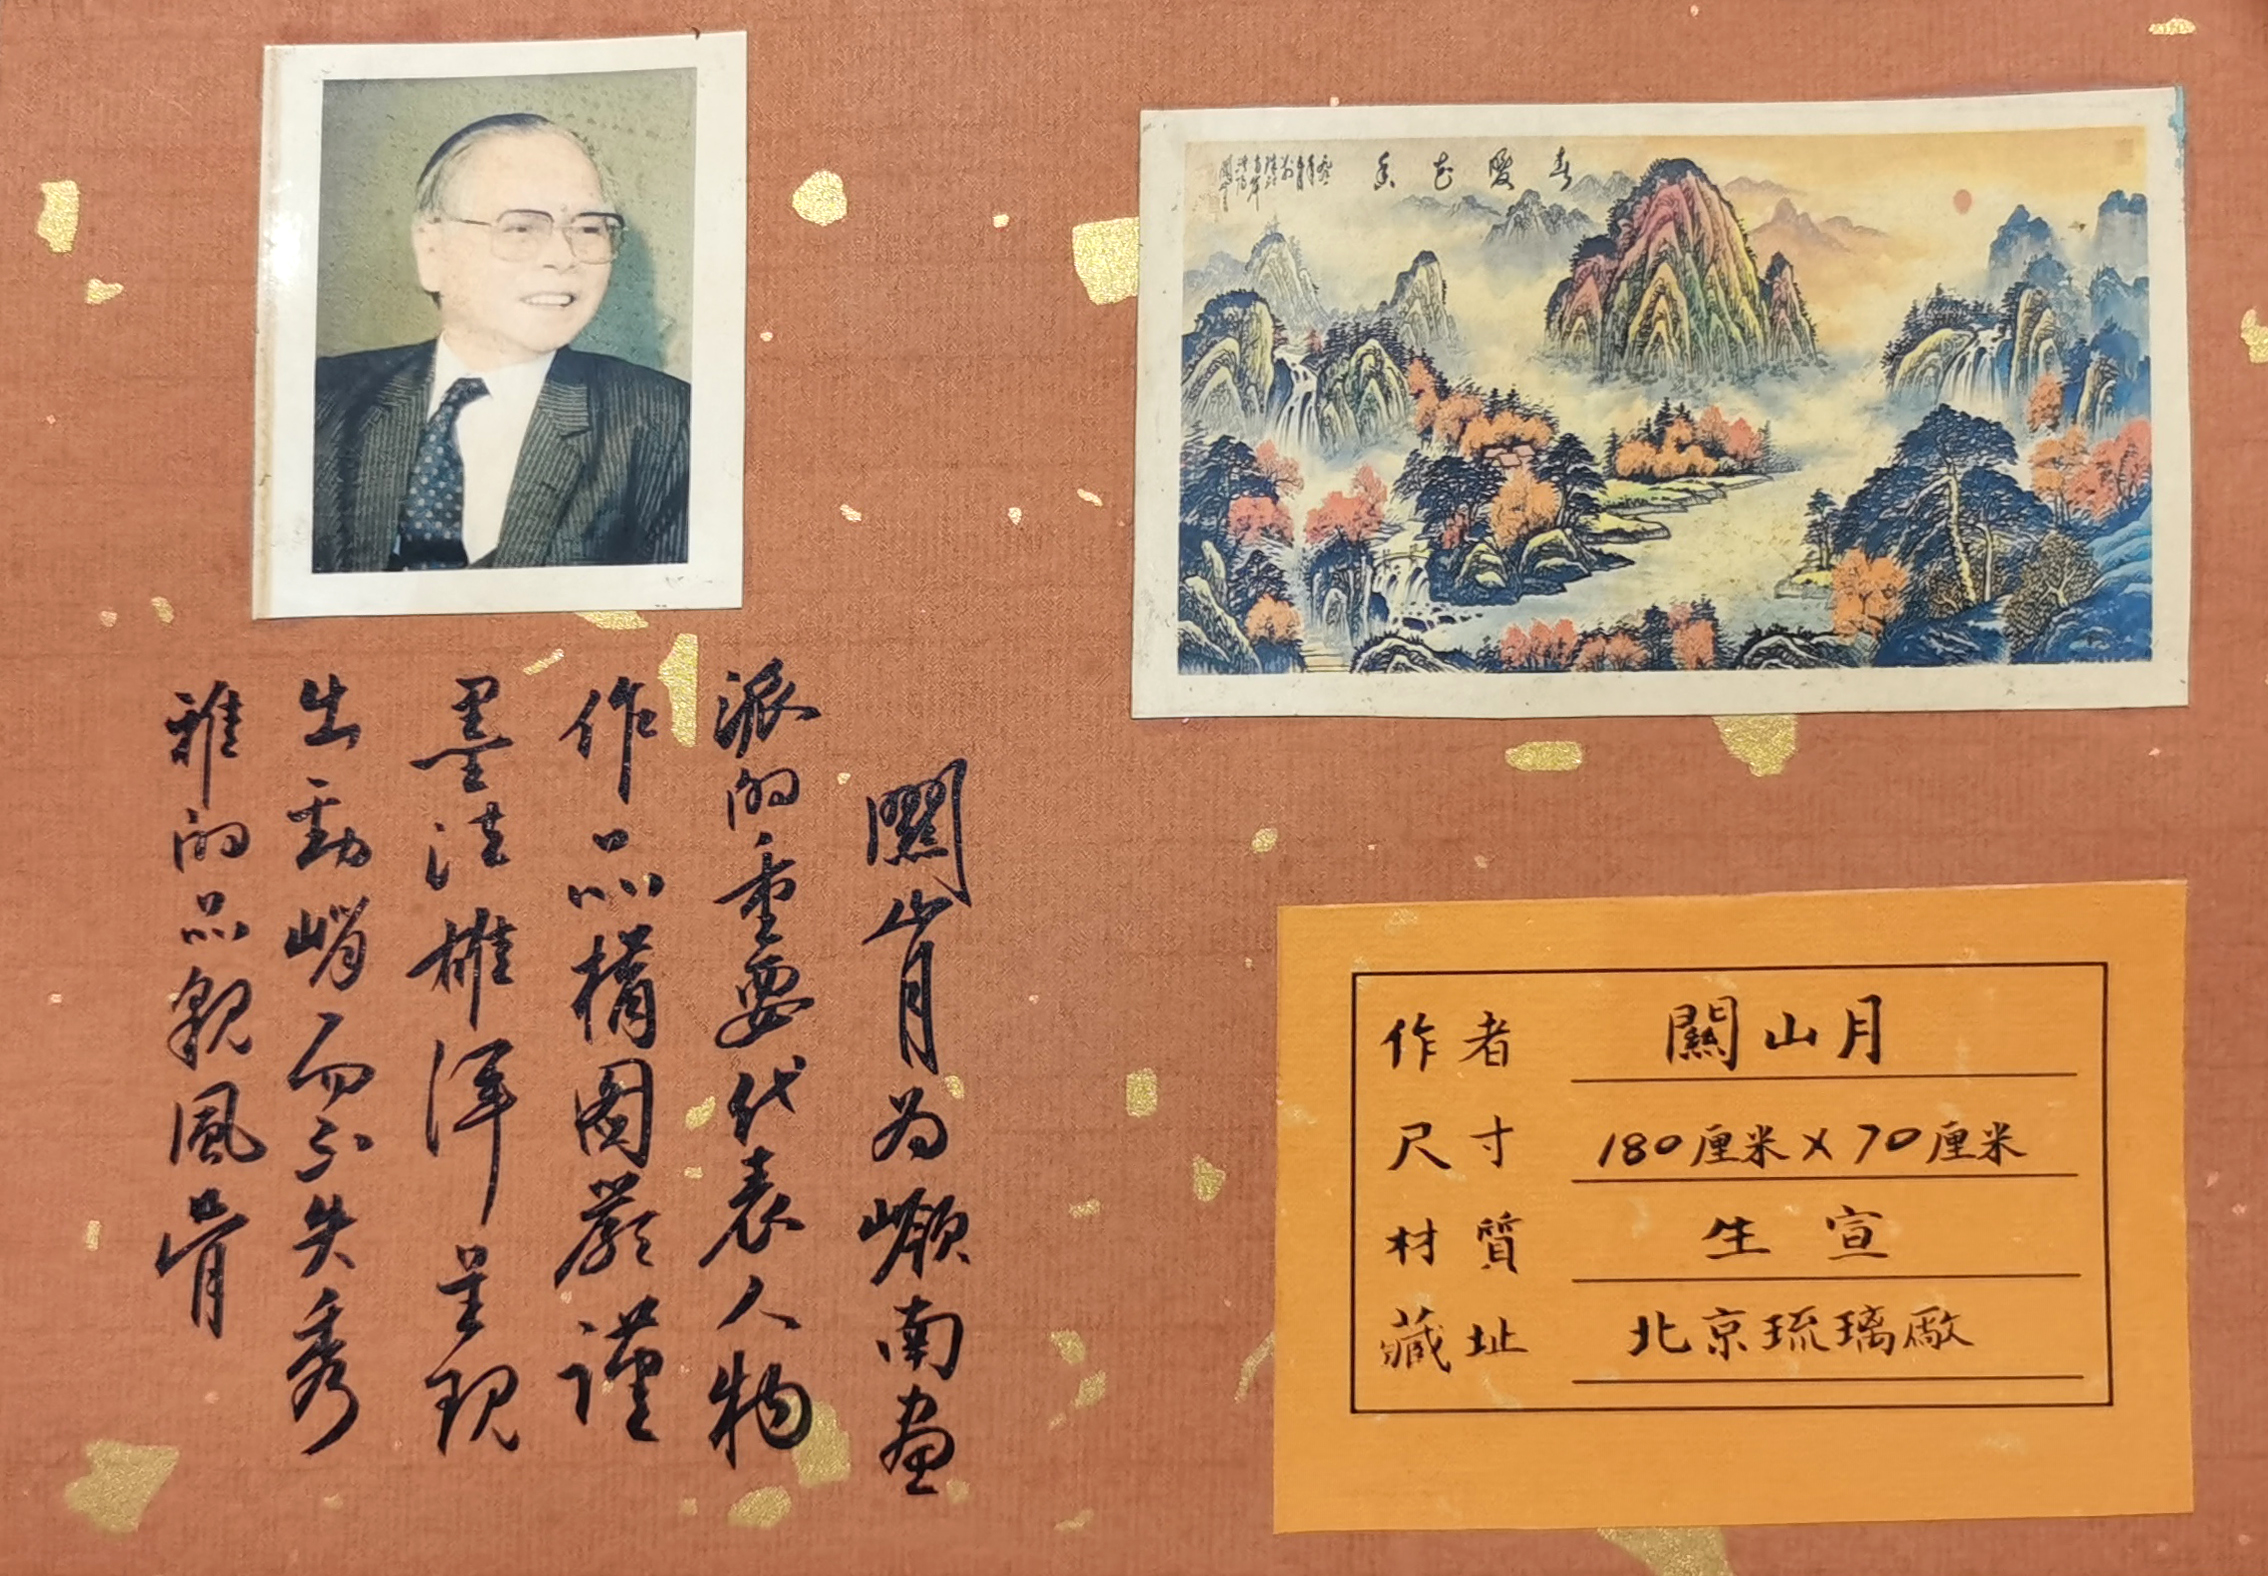 關山月为嶺南畫
派的重要代表人物
作品構图嚴謹
墨法雄渾呈现
出動峭而不失秀
雅的品貌風骨
作者 關山月
尺寸 180厘米×70厘米
材質 生宣
藏址 北京琉璃厰